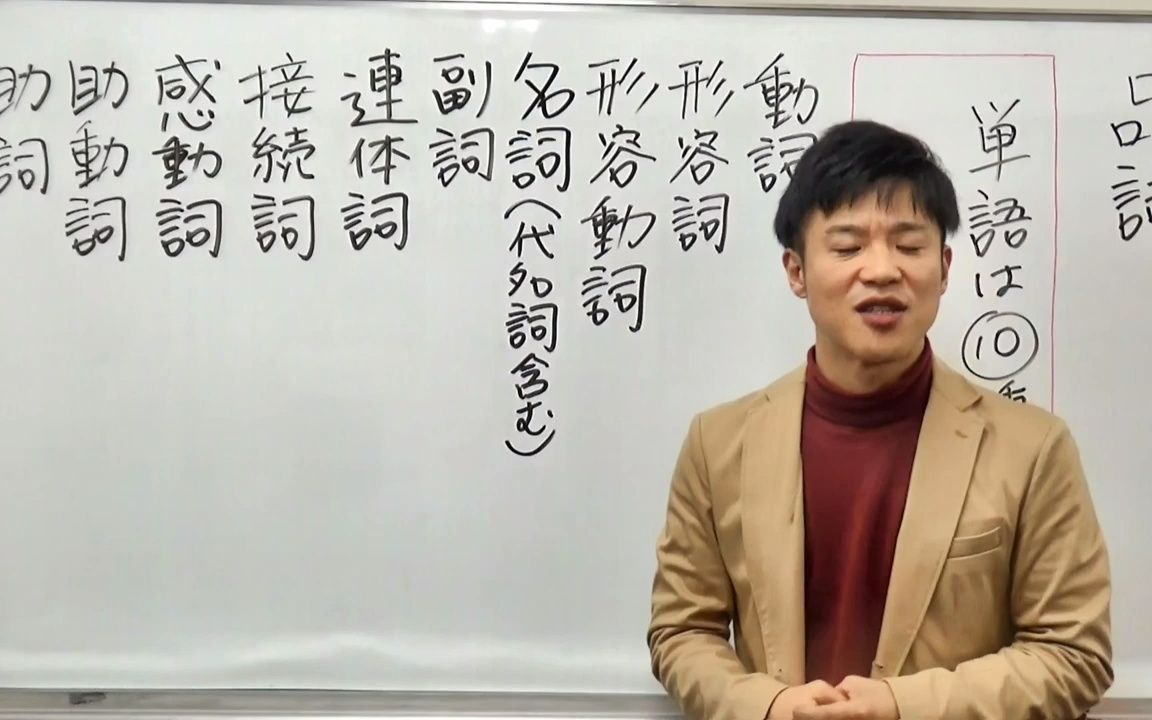 品詞
単語は⑩
動詞
形容詞
形容動詞
名詞(代名詞含む)
副詞
連体詞
接続詞
感動詞
助動詞
助詞